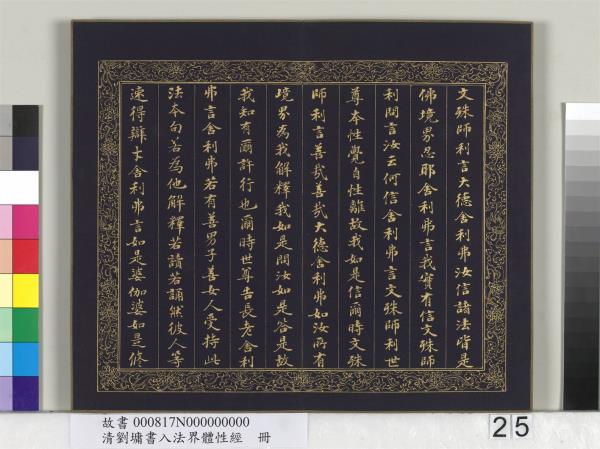 文殊師利言大德舍利弗汝信諸法皆是
佛境界忍耶舍利弗言我實有信文殊師
利問言汝云何信舍利弗言文殊師利世
尊本性覺自性離故我如是信爾時文殊
師利言善哉善哉大德舍利弗如汝所有
境界為我解釋我如是問汝如是答是故
我知有爾許行也爾時世尊告長老舍利
弗言舍利弗若有善男子善女人受持此
法本句若為他解釋若讀若誦然彼人等
速得辯才舍利弗言如是婆伽婆如是修
故書 000817N000000000
清劉墉書入法界體性經 冊
25